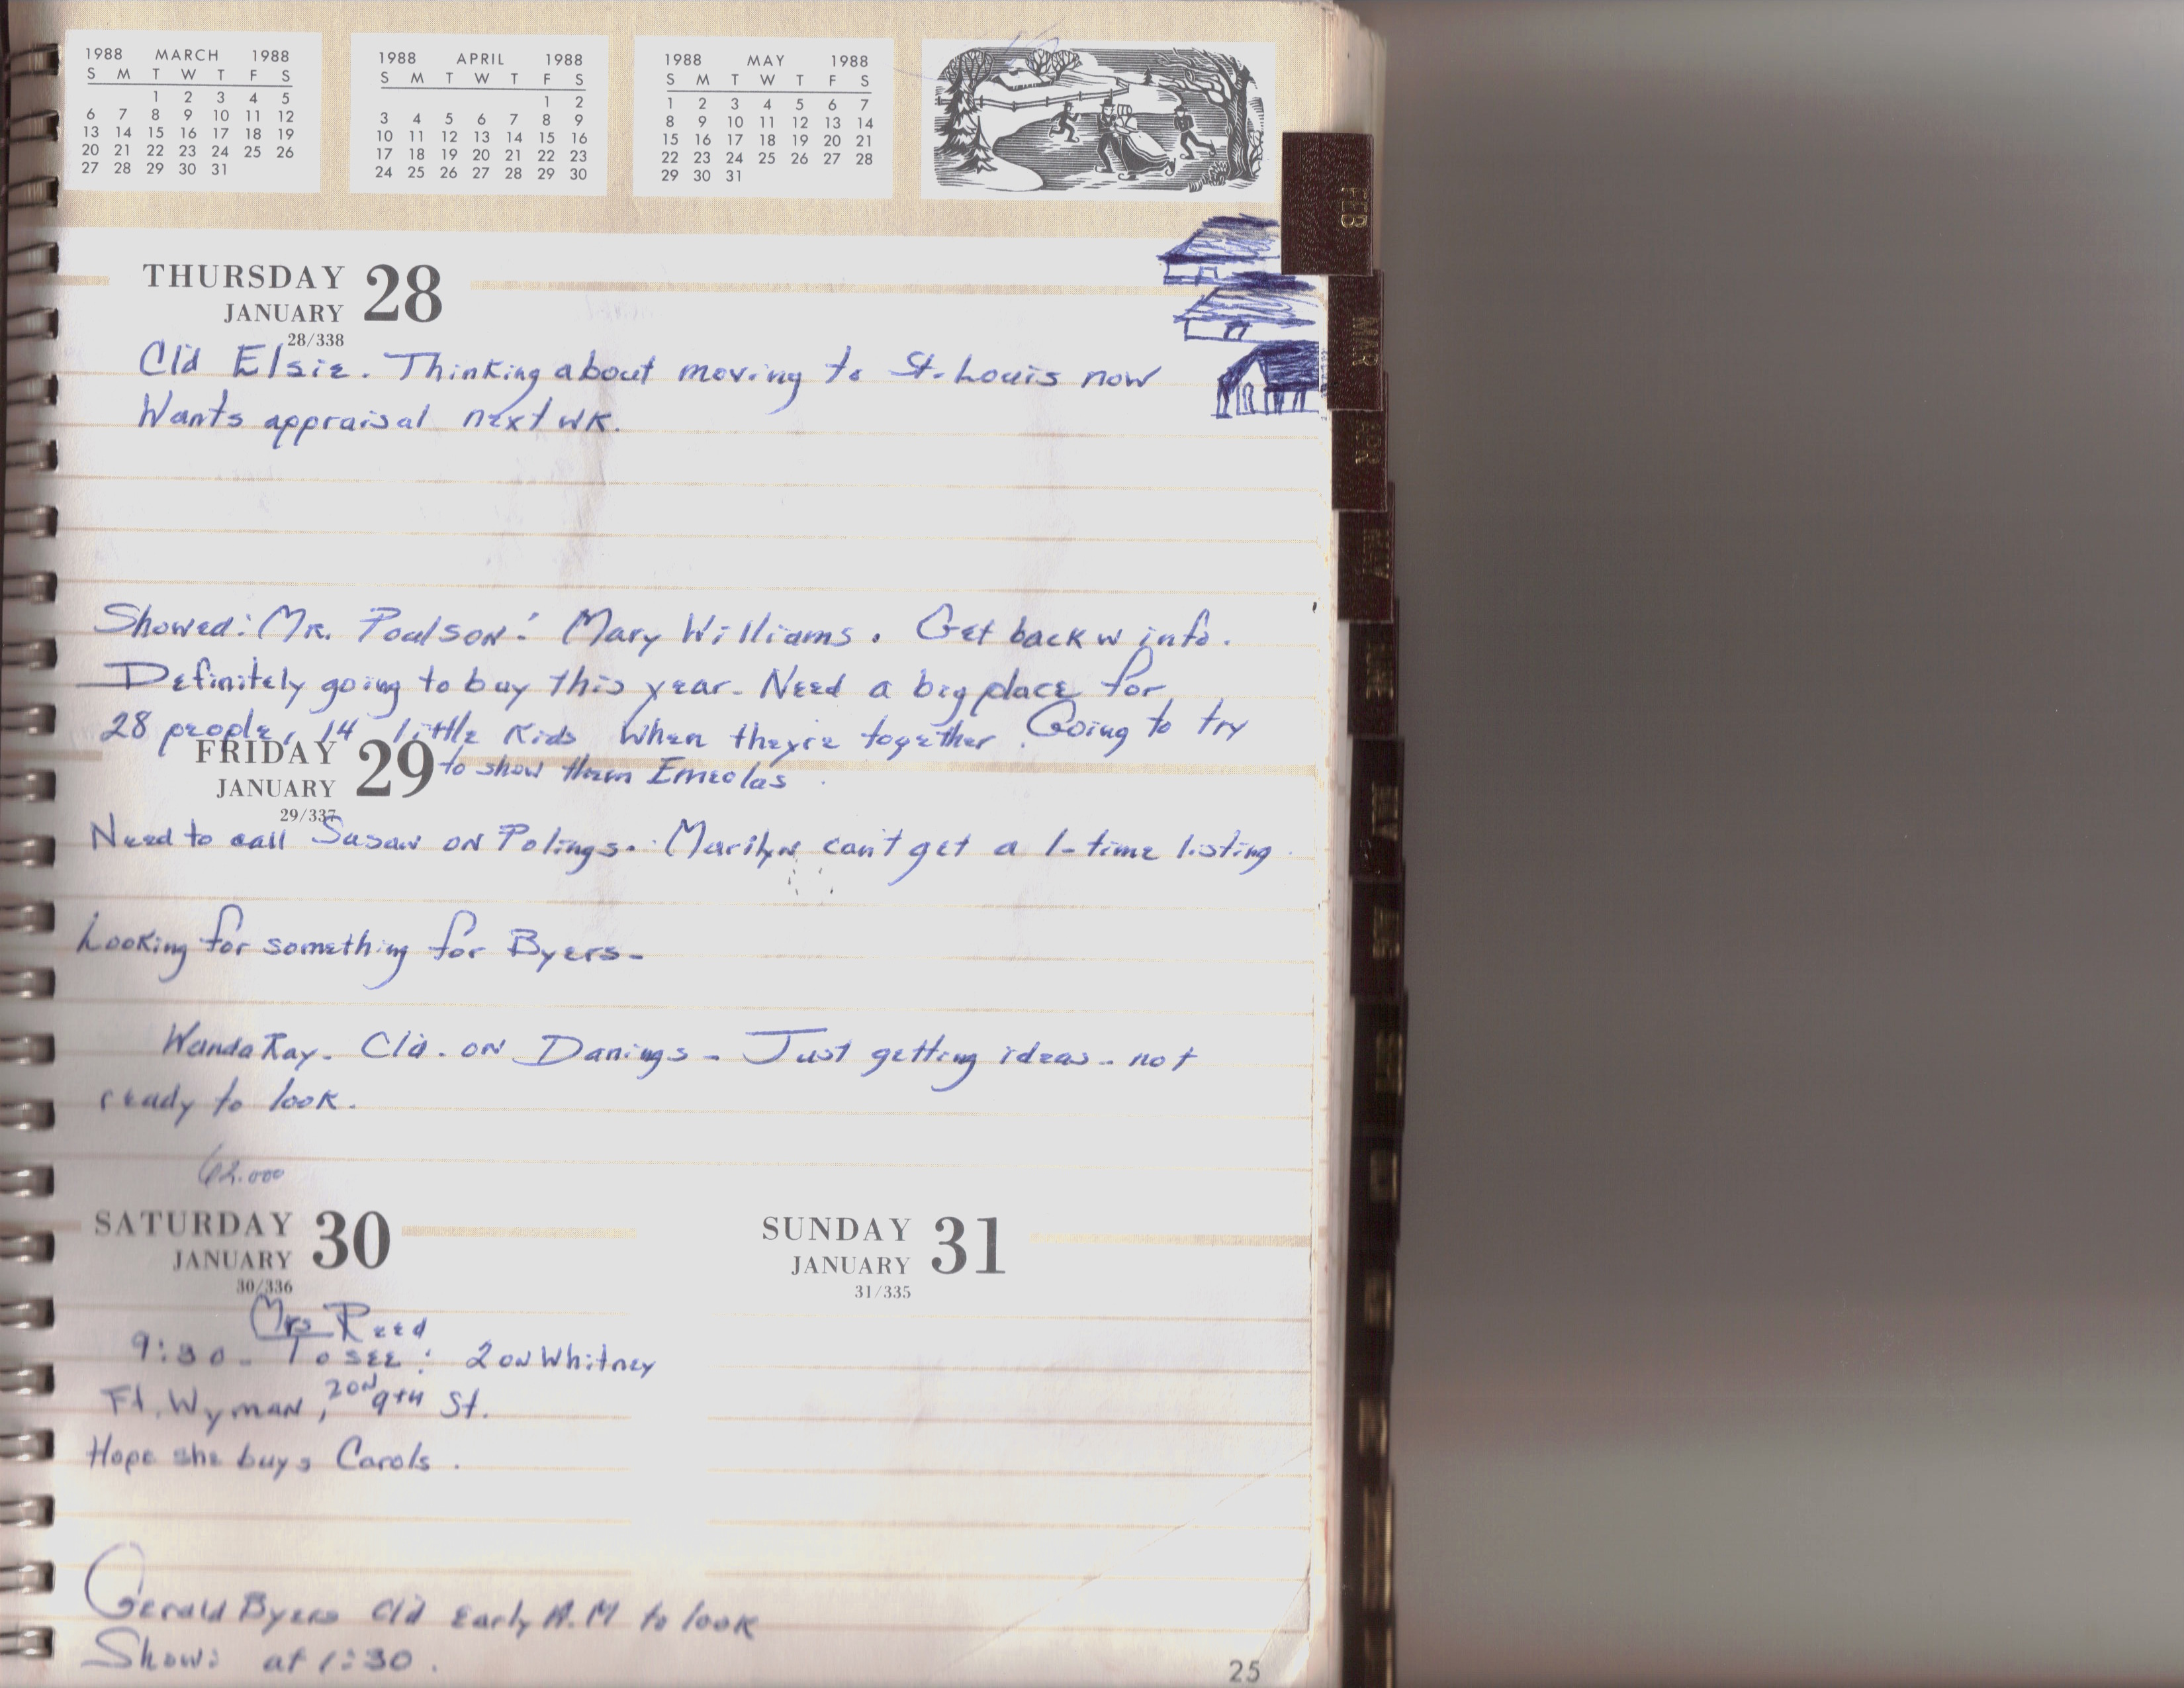 1988 MARCH 1988
S M T W T F S
1 2 3 4 5
6 7 8 9 10 11 12
13 14 15 16 17 18 19
20 21 22 23 24 25 26
27 28 29 30 31
1988 APRIL 1988
S M T W T F S
1 2
3 4 5 6 7 8 9
10 11 12 13 14 15 16
17 18 19 20 21 22 23
24 25 26 27 28 29 30
1988 MAY 1988
S M T W T F S
1 2 3 4 5 6 7
8 9 10 11 12 13 14
15 16 17 18 19 20 21
22 23 24 25 26 27 28
29 30 31
FEB
MAR
APR
MAY
JUNE
THURSDAY 28
JANUARY
28/338
Cl'd Elsie. Thinking about moving to St. Louis now
Wants appraisal next wk.
Showed: Mr. Poulson: Mary Williams. Get back w info.
Definitely going to buy this year. Need a big place for
28 people, 14 little kids when they're together. Going to try
to show them Emeolas.
FRIDAY 29
JANUARY
29/337
Need to call Susan on Polings. Marilyn can't get a 1-time listing.
Looking for something for Byers-
Wanda Ray. Cld. on Danings - Just getting ideas - not
ready to look.
62.000
SATURDAY 30
JANUARY
30/336
Mrs Reed
9:30 - To see: 2 on Whitney
Ft. Wyman, 2 on 9th St.
Hope she buys Carols.
Gerald Byers cld early A.M to look
Show: at 1:30.
SUNDAY 31
JANUARY
31/335
25